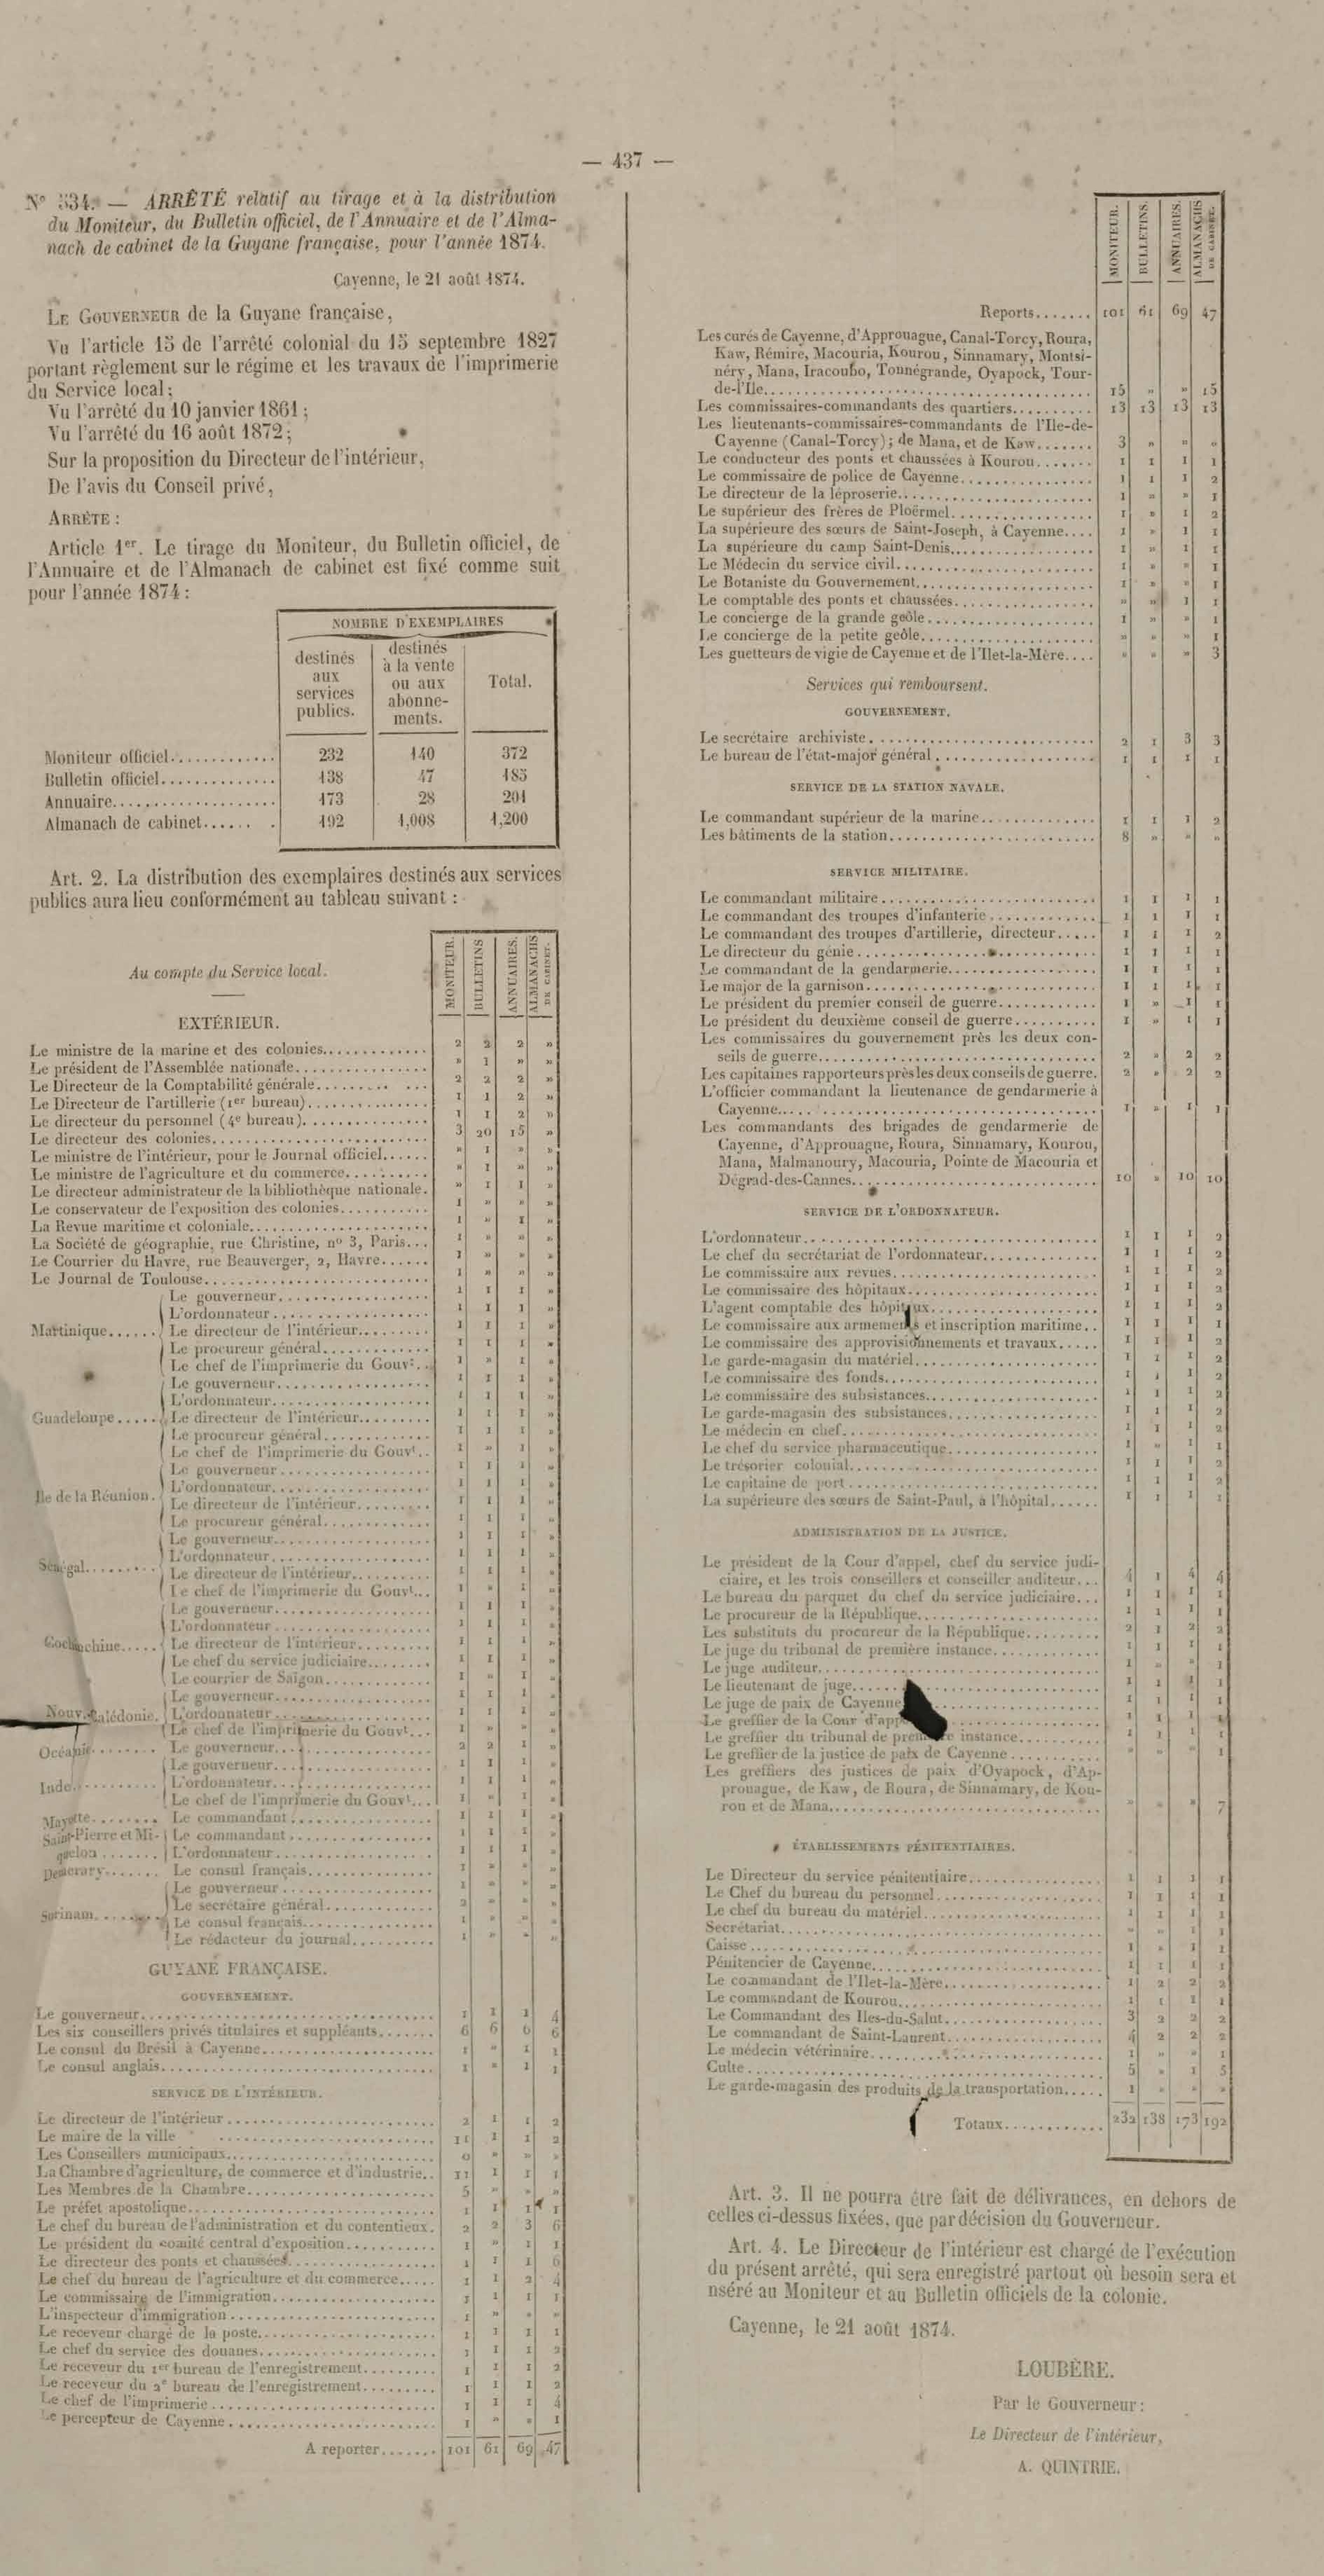 — 437 —
N° 534. — ARRÊTÉ relatif au tirage et à la distribution
du Moniteur, du Bulletin officiel, de l'Annuaire et de l'Alma-
nach de cabinet de la Guyane française, pour l'année 1874.
Cayenne, le 21 août 1874.
LE GOUVERNEUR de la Guyane française,
Vu l'article 15 de l'arrêté colonial du 15 septembre 1827
portant règlement sur le régime et les travaux de l'imprimerie
du Service local;
Vu l'arrêté du 10 janvier 1861;
Vu l'arrêté du 16 août 1872;
Sur la proposition du Directeur de l'intérieur,
De l'avis du Conseil privé,
ARRÊTE :
Article 1er. Le tirage du Moniteur, du Bulletin officiel, de
l'Annuaire et de l'Almanach de cabinet est fixé comme suit
pour l'année 1874 :
NOMBRE D'EXEMPLAIRES
destinés aux services publics. destinés à la vente ou aux abonne-ments. Total.
Moniteur officiel............ 232 140 372
Bulletin officiel............ 138 47 185
Annuaire............ 173 28 201
Almanach de cabinet....... 192 1,008 1,200
Art. 2. La distribution des exemplaires destinés aux services
publics aura lieu conformément au tableau suivant :
MONITEUR. BULLETINS ANNUAIRES. ALMANACHS DE CABINET.
Au compte du Service local.
EXTÉRIEUR.
Le ministre de la marine et des colonies..... 2 2 2 »
Le président de l'Assemblée nationale..... » 1 » »
Le Directeur de la Comptabilité générale..... 2 2 2 »
Le Directeur de l'artillerie (1er bureau)..... 1 1 2 »
Le directeur du personnel (4e bureau)..... 1 1 2 »
Le directeur des colonies..... 3 20 15 »
Le ministre de l'intérieur, pour le Journal officiel..... » 1 » »
Le ministre de l'agriculture et du commerce..... » 1 » »
Le directeur administrateur de la bibliothèque nationale. » 1 1 »
Le conservateur de l'exposition des colonies..... 1 » » »
La Revue maritime et coloniale..... 1 » 1 »
La Société de géographie, rue Christine, n° 3, Paris... 1 » » »
Le Courrier du Havre, rue Beauverger, 2, Havre..... 1 » » »
Le Journal de Toulouse..... 1 » » »
Le gouverneur..... 1 1 1 »
L'ordonnateur..... 1 1 1 »
Martinique...... Le directeur de l'intérieur..... 1 1 1 »
Le procureur général..... 1 1 1 »
Le chef de l'imprimerie du Gouvt... 1 » 1 »
Le gouverneur..... 1 1 1 »
L'ordonnateur..... 1 1 1 »
Guadeloupe..... Le directeur de l'intérieur..... 1 1 1 »
Le procureur général..... 1 1 1 »
Le chef de l'imprimerie du Gouvt.. 1 » 1 »
Le gouverneur..... 1 1 1 »
L'ordonnateur..... 1 1 1 »
Ile de la Réunion. Le directeur de l'intérieur..... 1 1 1 »
Le procureur général..... 1 1 1 »
Le gouverneur..... 1 1 1 »
L'ordonnateur..... 1 1 1 »
Sénégal......... Le directeur de l'intérieur..... 1 1 1 »
Le chef de l'imprimerie du Gouvt... 1 » 1 »
Le gouverneur..... 1 1 1 »
L'ordonnateur..... 1 1 1 »
Cochinchine..... Le directeur de l'intérieur..... 1 1 1 »
Le chef du service judiciaire..... 1 1 1 »
Le courrier de Saïgon..... 1 » 1 »
Le gouverneur..... 1 1 1 »
Nouv.-Calédonie. L'ordonnateur..... 1 1 1 »
Le chef de l'imprimerie du Gouvt... 1 » » »
Océanie........ Le gouverneur..... 2 2 1 »
Le gouverneur..... 1 1 1 »
Inde.......... L'ordonnateur..... 1 1 1 »
Le chef de l'imprimerie du Gouvt... 1 » 1 »
Mayotte........ Le commandant..... 1 1 1 »
Saint-Pierre et Mi- Le commandant..... 1 1 1 »
quelon....... L'ordonnateur..... 1 1 1 »
Demerary...... Le consul français..... 1 » » »
Le gouverneur..... 1 » » »
Le secrétaire général..... 2 » » »
Surinam....... Le consul français..... 1 » » »
Le rédacteur du journal..... 1 » » »
GUYANE FRANÇAISE.
GOUVERNEMENT.
Le gouverneur..... 1 1 1 4
Les six conseillers privés titulaires et suppléants..... 6 6 6 6
Le consul du Brésil à Cayenne..... 1 » 1 1
Le consul anglais..... 1 » 1 1
SERVICE DE L'INTÉRIEUR.
Le directeur de l'intérieur..... 2 1 1 2
Le maire de la ville ..... 11 1 1 2
Les Conseillers municipaux..... 0 » » »
La Chambre d'agriculture, de commerce et d'industrie.. 11 1 1 1
Les Membres de la Chambre..... 5 » » »
Le préfet apostolique..... 1 1 1 1
Le chef du bureau de l'administration et du contentieux. 2 2 3 6
Le président du comité central d'exposition..... 1 » 1 1
Le directeur des ponts et chaussées..... 1 1 1 6
Le chef du bureau de l'agriculture et du commerce..... 1 1 2 4
Le commissaire de l'immigration..... 1 1 1 1
L'inspecteur d'immigration..... 1 » » »
Le receveur chargé de la poste..... 1 1 1 1
Le chef du service des douanes..... 1 1 1 2
Le receveur du 1er bureau de l'enregistrement..... 1 1 1 2
Le receveur du 2e bureau de l'enregistrement..... 1 1 1 2
Le chef de l'imprimerie..... 1 1 1 4
Le percepteur de Cayenne..... 1 » » 1
A reporter....... 101 61 69 47
MONITEUR. BULLETINS. ANNUAIRES. ALMANACHS DE CABINET.
Reports....... 101 61 69 47
Les curés de Cayenne, d'Approuague, Canal-Torcy, Roura,
Kaw, Rémire, Macouria, Kourou, Sinnamary, Montsi-
néry, Mana, Iracoubo, Tonnégrande, Oyapock, Tour-
de-l'Ile..... 15 » » 15
Les commissaires-commandants des quartiers..... 13 13 13 13
Les lieutenants-commissaires-commandants de l'Ile-de-
Cayenne (Canal-Torcy); de Mana, et de Kaw..... 3 » » »
Le conducteur des ponts et chaussées à Kourou..... 1 1 1 1
Le commissaire de police de Cayenne..... 1 1 1 2
Le directeur de la léproserie..... 1 » » 1
Le supérieur des frères de Ploërmel..... 1 » 1 2
La supérieure des sœurs de Saint-Joseph, à Cayenne.... 1 » 1 1
La supérieure du camp Saint-Denis..... 1 » 1 1
Le Médecin du service civil..... 1 » » 1
Le Botaniste du Gouvernement..... 1 » » 1
Le comptable des ponts et chaussées..... » » 1 1
Le concierge de la grande geôle..... 1 » » 1
Le concierge de la petite geôle..... » » » 1
Les guetteurs de vigie de Cayenne et de l'Ilet-la-Mère.... » » » 3
Services qui remboursent.
GOUVERNEMENT.
Le secrétaire archiviste..... 2 1 3 3
Le bureau de l'état-major général..... 1 1 1 1
SERVICE DE LA STATION NAVALE.
Le commandant supérieur de la marine..... 1 1 1 2
Les bâtiments de la station..... 8 » » »
SERVICE MILITAIRE.
Le commandant militaire..... 1 1 1 1
Le commandant des troupes d'infanterie..... 1 1 1 1
Le commandant des troupes d'artillerie, directeur..... 1 1 1 2
Le directeur du génie..... 1 1 1 1
Le commandant de la gendarmerie..... 1 1 1 1
Le major de la garnison..... 1 1 1 1
Le président du premier conseil de guerre..... 1 » 1 1
Le président du deuxième conseil de guerre..... 1 » 1 1
Les commissaires du gouvernement près les deux con-
seils de guerre..... 2 » 2 2
Les capitaines rapporteurs près les deux conseils de guerre. 2 » 2 2
L'officier commandant la lieutenance de gendarmerie à
Cayenne..... 1 » 1 1
Les commandants des brigades de gendarmerie de
Cayenne, d'Approuague, Roura, Sinnamary, Kourou,
Mana, Malmanoury, Macouria, Pointe de Macouria et
Dégrad-des-Cannes..... 10 » 10 10
SERVICE DE L'ORDONNATEUR.
L'ordonnateur..... 1 1 1 2
Le chef du secrétariat de l'ordonnateur..... 1 1 1 2
Le commissaire aux revues..... 1 1 1 2
Le commissaire des hôpitaux..... 1 1 1 2
L'agent comptable des hôpitaux..... 1 1 1 2
Le commissaire aux armements et inscription maritime.. 1 1 1 2
Le commissaire des approvisionnements et travaux..... 1 1 1 2
Le garde-magasin du matériel..... 1 1 1 2
Le commissaire des fonds..... 1 1 1 2
Le commissaire des subsistances..... 1 1 1 2
Le garde-magasin des subsistances..... 1 1 1 2
Le médecin en chef..... 1 1 1 2
Le chef du service pharmaceutique..... 1 » 1 1
Le trésorier colonial..... 1 1 1 2
Le capitaine de port..... 1 1 1 2
La supérieure des sœurs de Saint-Paul, à l'hôpital..... 1 1 1 1
ADMINISTRATION DE LA JUSTICE.
Le président de la Cour d'appel, chef du service judi-
ciaire, et les trois conseillers et conseiller auditeur... 4 1 4 4
Le bureau du parquet du chef du service judiciaire... 1 1 1 1
Le procureur de la République..... 1 1 1 1
Les substituts du procureur de la République..... 2 1 2 2
Le juge du tribunal de première instance..... 1 1 1 1
Le juge auditeur..... 1 » » 1
Le lieutenant de juge..... 1 1 1 1
Le juge de paix de Cayenne..... 1 1 1 1
Le greffier de la Cour d'app..... 1 1 1 1
Le greffier du tribunal de première instance..... 1 1 1 1
Le greffier de la justice de paix de Cayenne..... » » 1 1
Les greffiers des justices de paix d'Oyapock, d'Ap-
prouague, de Kaw, de Roura, de Sinnamary, de Kou-
rou et de Mana..... » » » 7
ÉTABLISSEMENTS PÉNITENTIAIRES.
Le Directeur du service pénitentiaire..... 1 1 1 1
Le Chef du bureau du personnel..... 1 1 1 1
Le chef du bureau du matériel..... 1 1 1 1
Secrétariat..... » » 1 1
Caisse..... 1 » 1 1
Pénitencier de Cayenne..... 1 1 1 1
Le commandant de l'Ilet-la-Mère..... 1 2 2 2
Le commandant de Kourou..... 1 1 1 1
Le Commandant des Iles-du-Salut..... 3 2 2 2
Le commandant de Saint-Laurent..... 4 2 2 2
Le médecin vétérinaire..... 1 » » 1
Culte..... 5 » 1 5
Le garde-magasin des produits de la transportation..... 1 » » »
Totaux............ 232 138 173 192
Art. 3. Il ne pourra être fait de délivrances, en dehors de
celles ci-dessus fixées, que par décision du Gouverneur.
Art. 4. Le Directeur de l'intérieur est chargé de l'exécution
du présent arrêté, qui sera enregistré partout où besoin sera et
nséré au Moniteur et au Bulletin officiels de la colonie.
Cayenne, le 21 août 1874.
LOUBÈRE.
Par le Gouverneur :
Le Directeur de l'intérieur,
A. QUINTRIE.